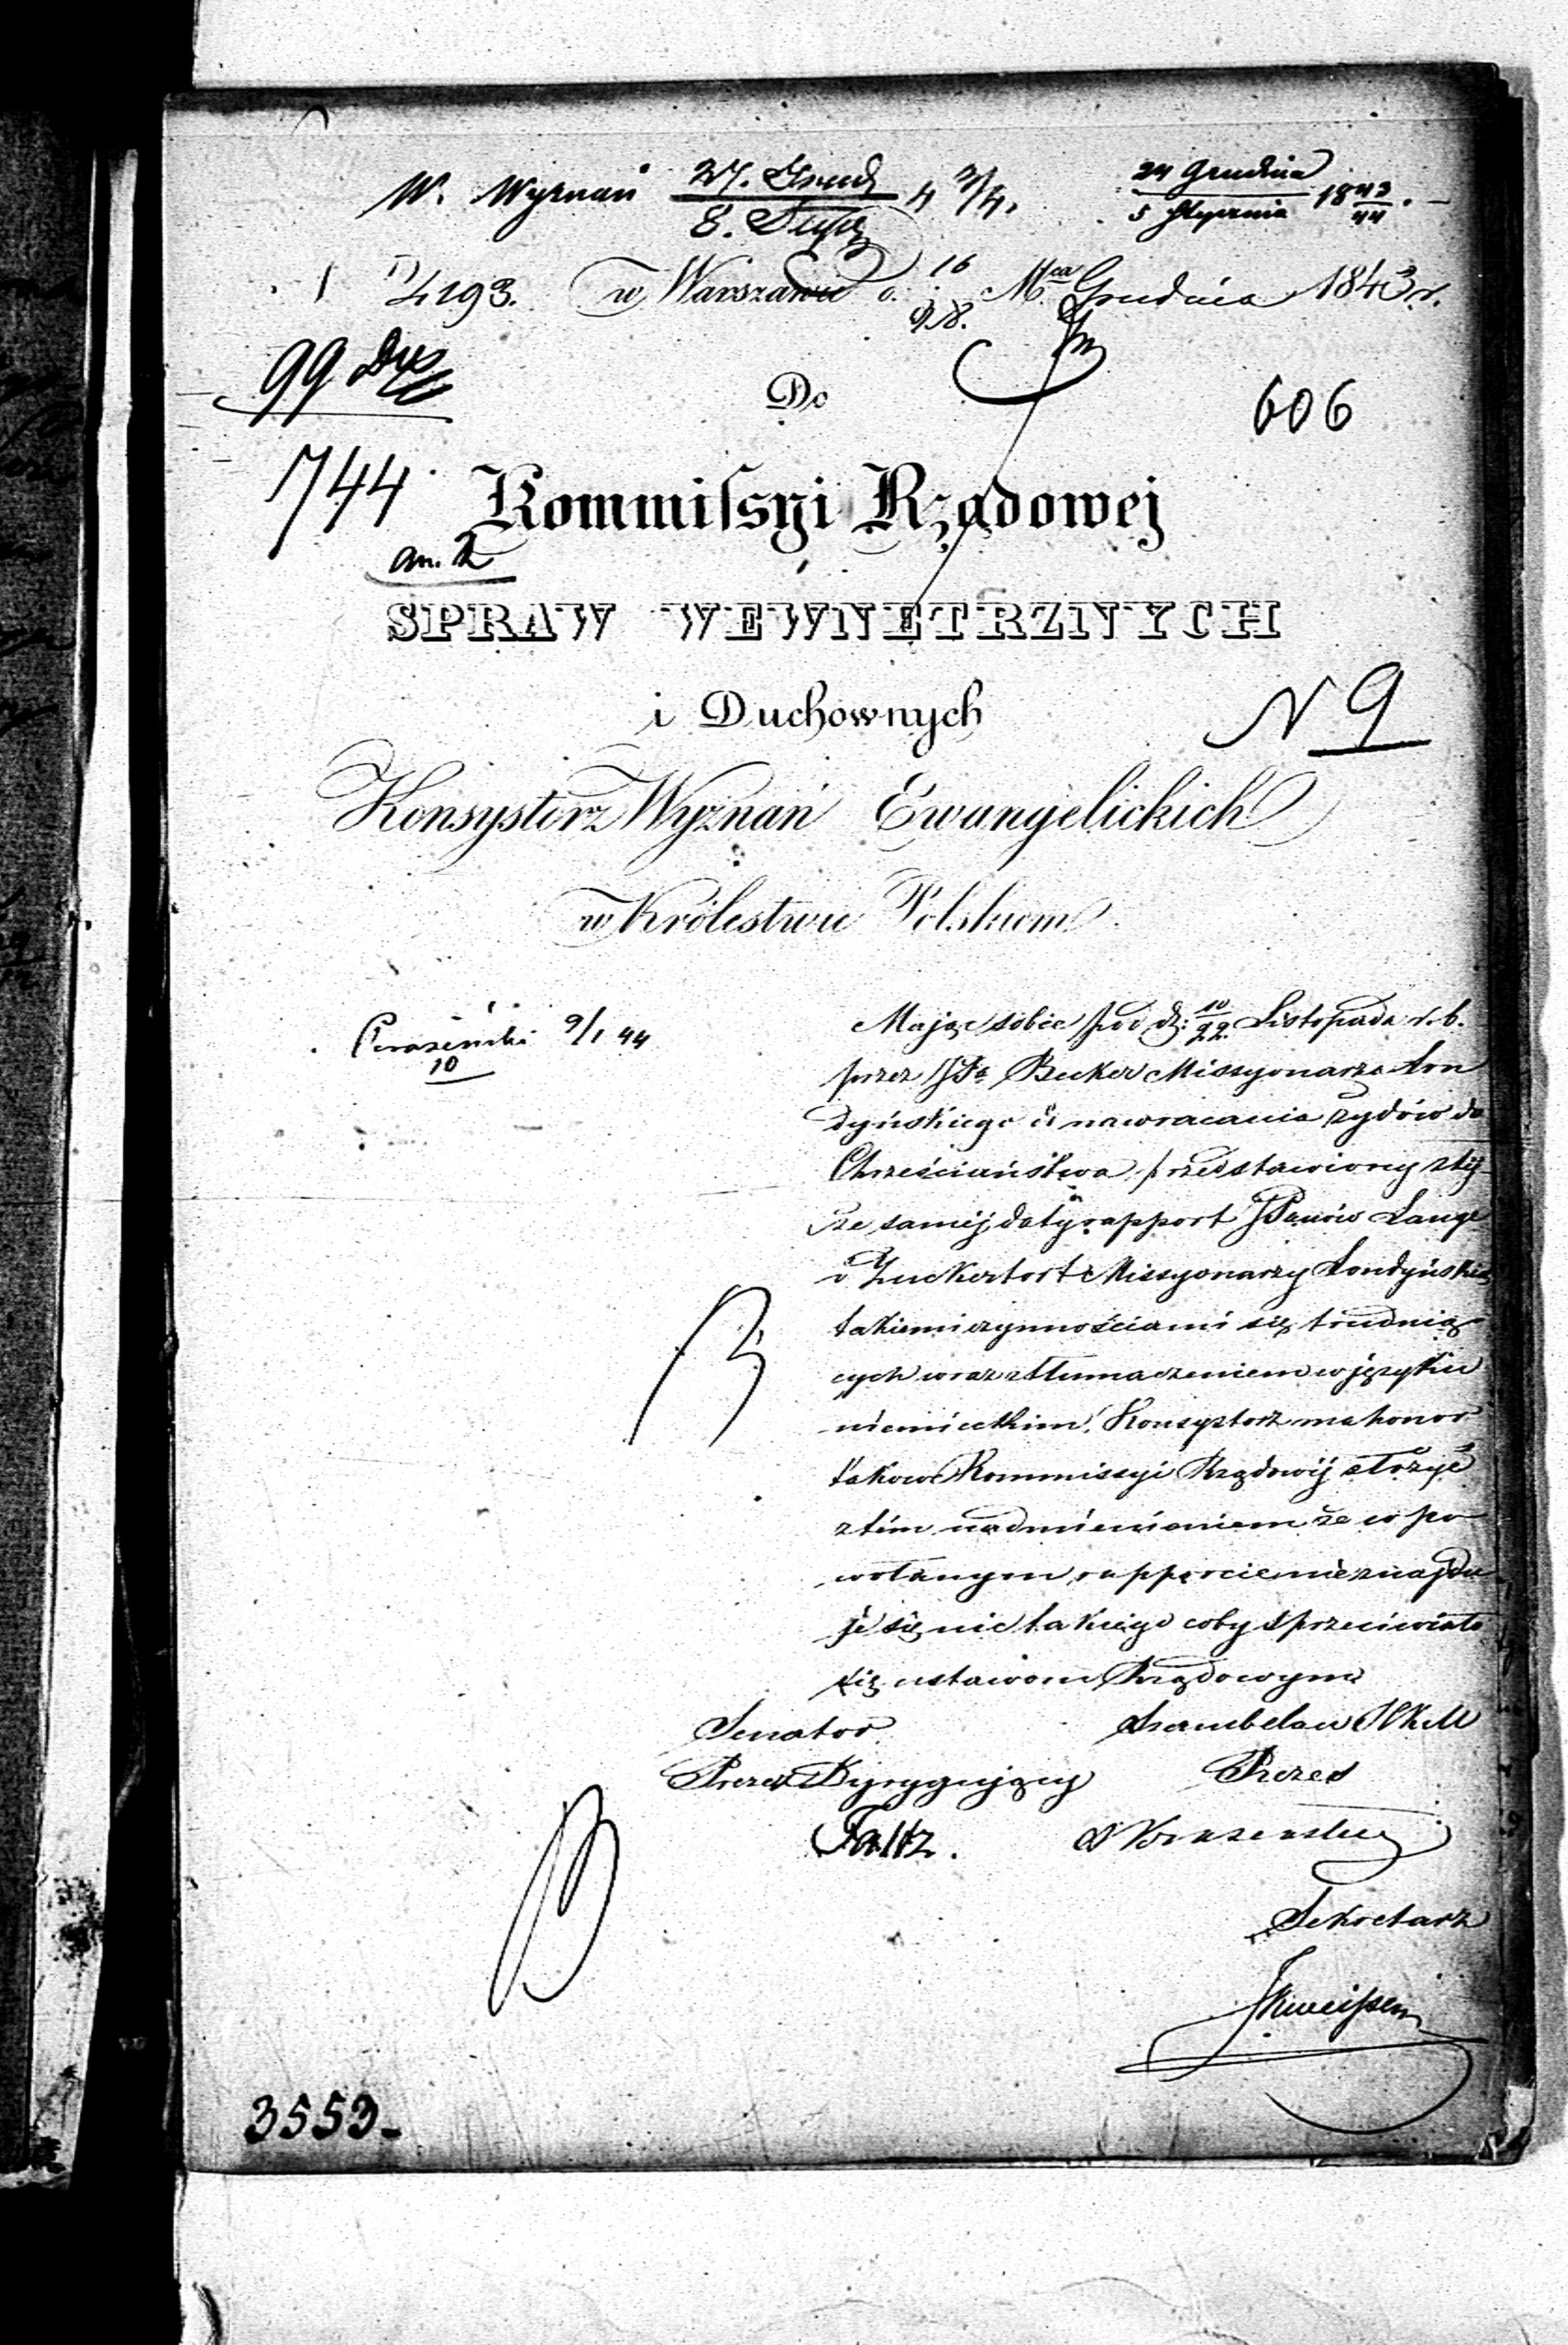 W. Wyznań 27. Grud 4 3/4. 24 Grudnia 1843
8. 5 Stycznia 44
4193. w Warszawie d. 16 Mca Grudnia 1843 r.
28.
99
Do
606
744
Kommiſsyi Rządowej
an. 2
SPRAW WEWNĘTRZNYCH
i Duchownych
N 9
Konsystorz Wyznań Ewangelickich
w Królestwie Polskiem
9/1 44
10
Mając sobie pod d: 10/22 Listopada r. b.
przez JPa Becker Missyonarza Lon
dyńskiego ku nawracania żydów do
Chrześciaństwa przedstawiony z tej
że saméj daty rapport JPanów Lange
i Zuckertort Missyonarzy Londyńskich
takiemi czynnościami się trudnią
cych wraz z tłumaczeniem w języku
niemieckim, Konsystorz ma honor
takowe Kommissyi Rządowéj złożyć
z tém nadmienieniem że w po
wołanym rapporcie nie znajdu
je się nic takiego coby sprzeciwiało
się ustawom Rządowym
Senator Szambelan
Prezes Dyrygujący Prezes
Faltz.
Sekretarz
3553